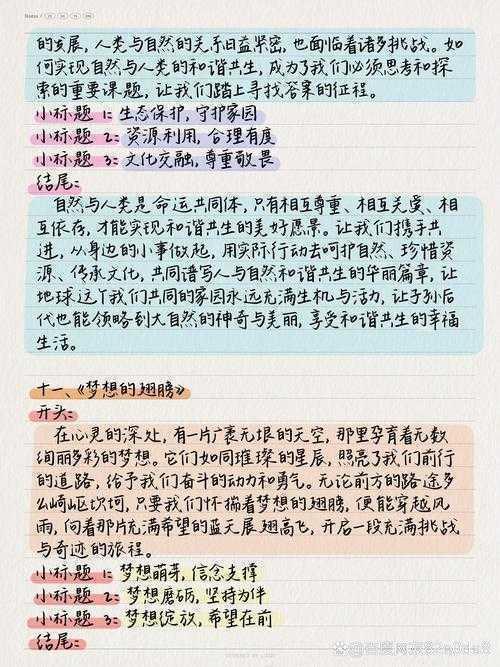 的发展,人类与自然的关系日益紧密,也面临着诸多挑战。如
何实现自然与人类的和谐共生,成为了我们必须思考和探
索的重要课题,让我们踏上寻找答案的征程。
小标题 1:生态保护,守护家园
小标题 2:资源利用,合理有度
小标题 3:文化交融,尊重敬畏
结尾:
自然与人类是命运共同体,只有相互尊重、相互关爱、相
互依存,才能实现和谐共生的美好愿景。让我们携手共
进,从身边的小事做起,用实际行动去呵护自然、珍惜资
源、传承文化,共同谱写人与自然和谐共生的华丽篇章,让
地球这个我们共同的家园永远充满生机与活力,让子孙后
代也能领略到大自然的神奇与美丽,享受和谐共生的幸福
生活。
十一、《梦想的翅膀》
开头:
在心灵的深处,有一片广袤无垠的天空,那里孕育着无数
绚丽多彩的梦想。它们如同璀璨的星辰,照亮了我们前行
的道路,给予我们奋斗的动力和勇气。无论前方的路途多
么崎岖坎坷,只要我们怀揣着梦想的翅膀,便能穿越风
雨,向着那片充满希望的蓝天展翅高飞,开启一段充满挑战
与奇迹的旅程。
小标题 1:梦想萌芽,信念支撑
小标题 2:梦想磨砺,坚持为伴
小标题 3:梦想绽放,希望在前
结尾: